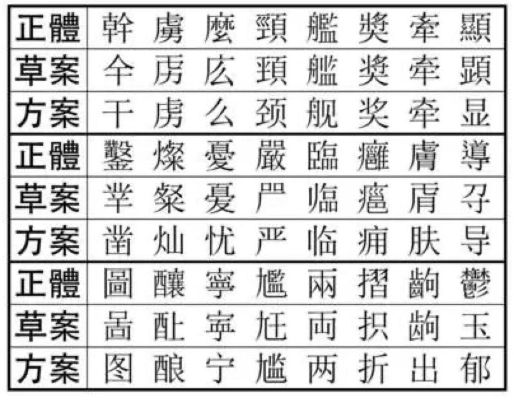 正體 幹 虜 麼 頸 艦 獎 牽 顯
草案 仐 庅 頚 艦 奬 牵 顕
方案 干 虏 么 颈 舰 奖 牵 显
正體 鑿 燦 憂 嚴 臨 癰 膚 導
草案 粲 憂
方案 凿 灿 忧 严 临 痈 肤 导
正體 圖 釀 寧 尷 兩 摺 齣 鬱
草案 両 玉
方案 图 酿 宁 尴 两 折 出 郁